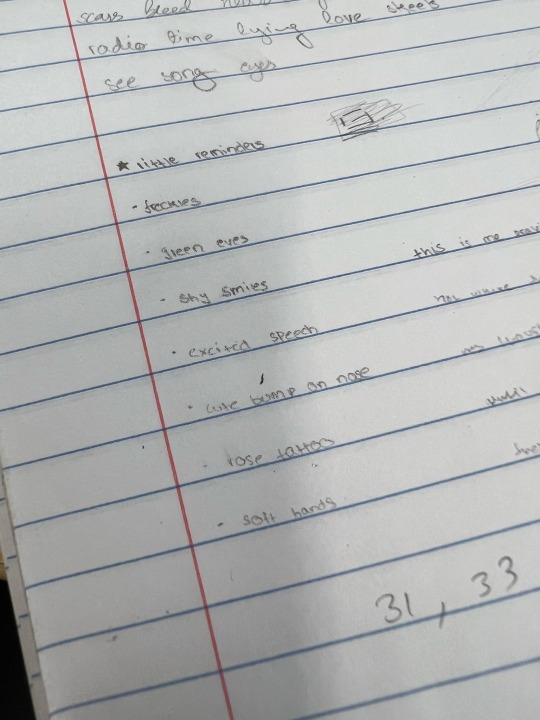 scars bleed
radio time lying love sheets
see song eyes
★ little reminders
- freckles
- green eyes
- shy smiles
- excited speech
- cute bump on nose
- rose tattoo
- soft hands
this is me
until
31, 33